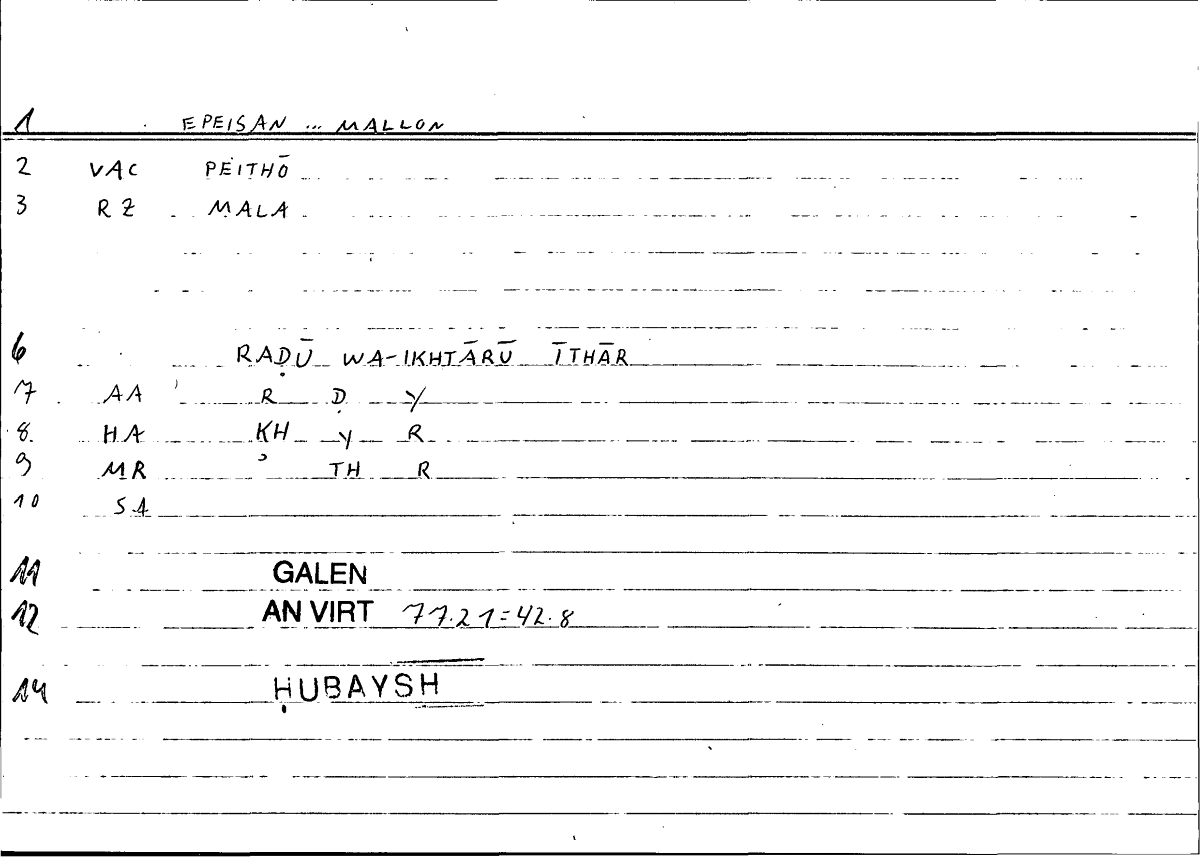 1 EPEISAN ... MALLON
2 VAC PEITHŌ
3 RZ MALA
6 RAḌŪ WA-IKHTĀRŪ ĪTHĀR
7 AA R Ḍ Y
8. HA KH Y R
9 MR ʾ TH R
10 SA
11 GALEN
12 AN VIRT 77.21=42.8
14 ḤUBAYSH